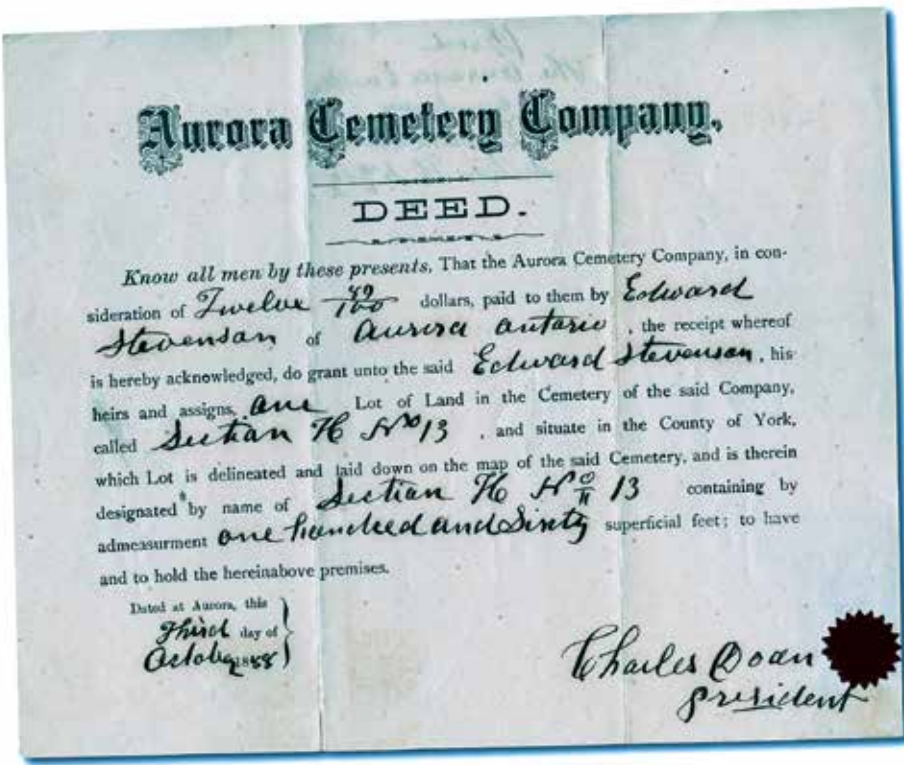 Aurora Cemetery Company,
DEED.
Know all men by these presents, That the Aurora Cemetery Company, in con-
sideration of Twelve 80/100 dollars, paid to them by Edward
Stevenson of Aurora Ontario, the receipt whereof
is hereby acknowledged, do grant unto the said Edward Stevenson, his
heirs and assigns, one Lot of Land in the Cemetery of the said Company,
called Section H No 13, and situate in the County of York,
which Lot is delineated and laid down on the map of the said Cemetery, and is therein
designated by name of Section H No 13 containing by
admeasurment one hundred and Sixty superficial feet; to have
and to hold the hereinabove premises.
Dated at Aurora, this
Third day of
October 1888
Charles Doan
president